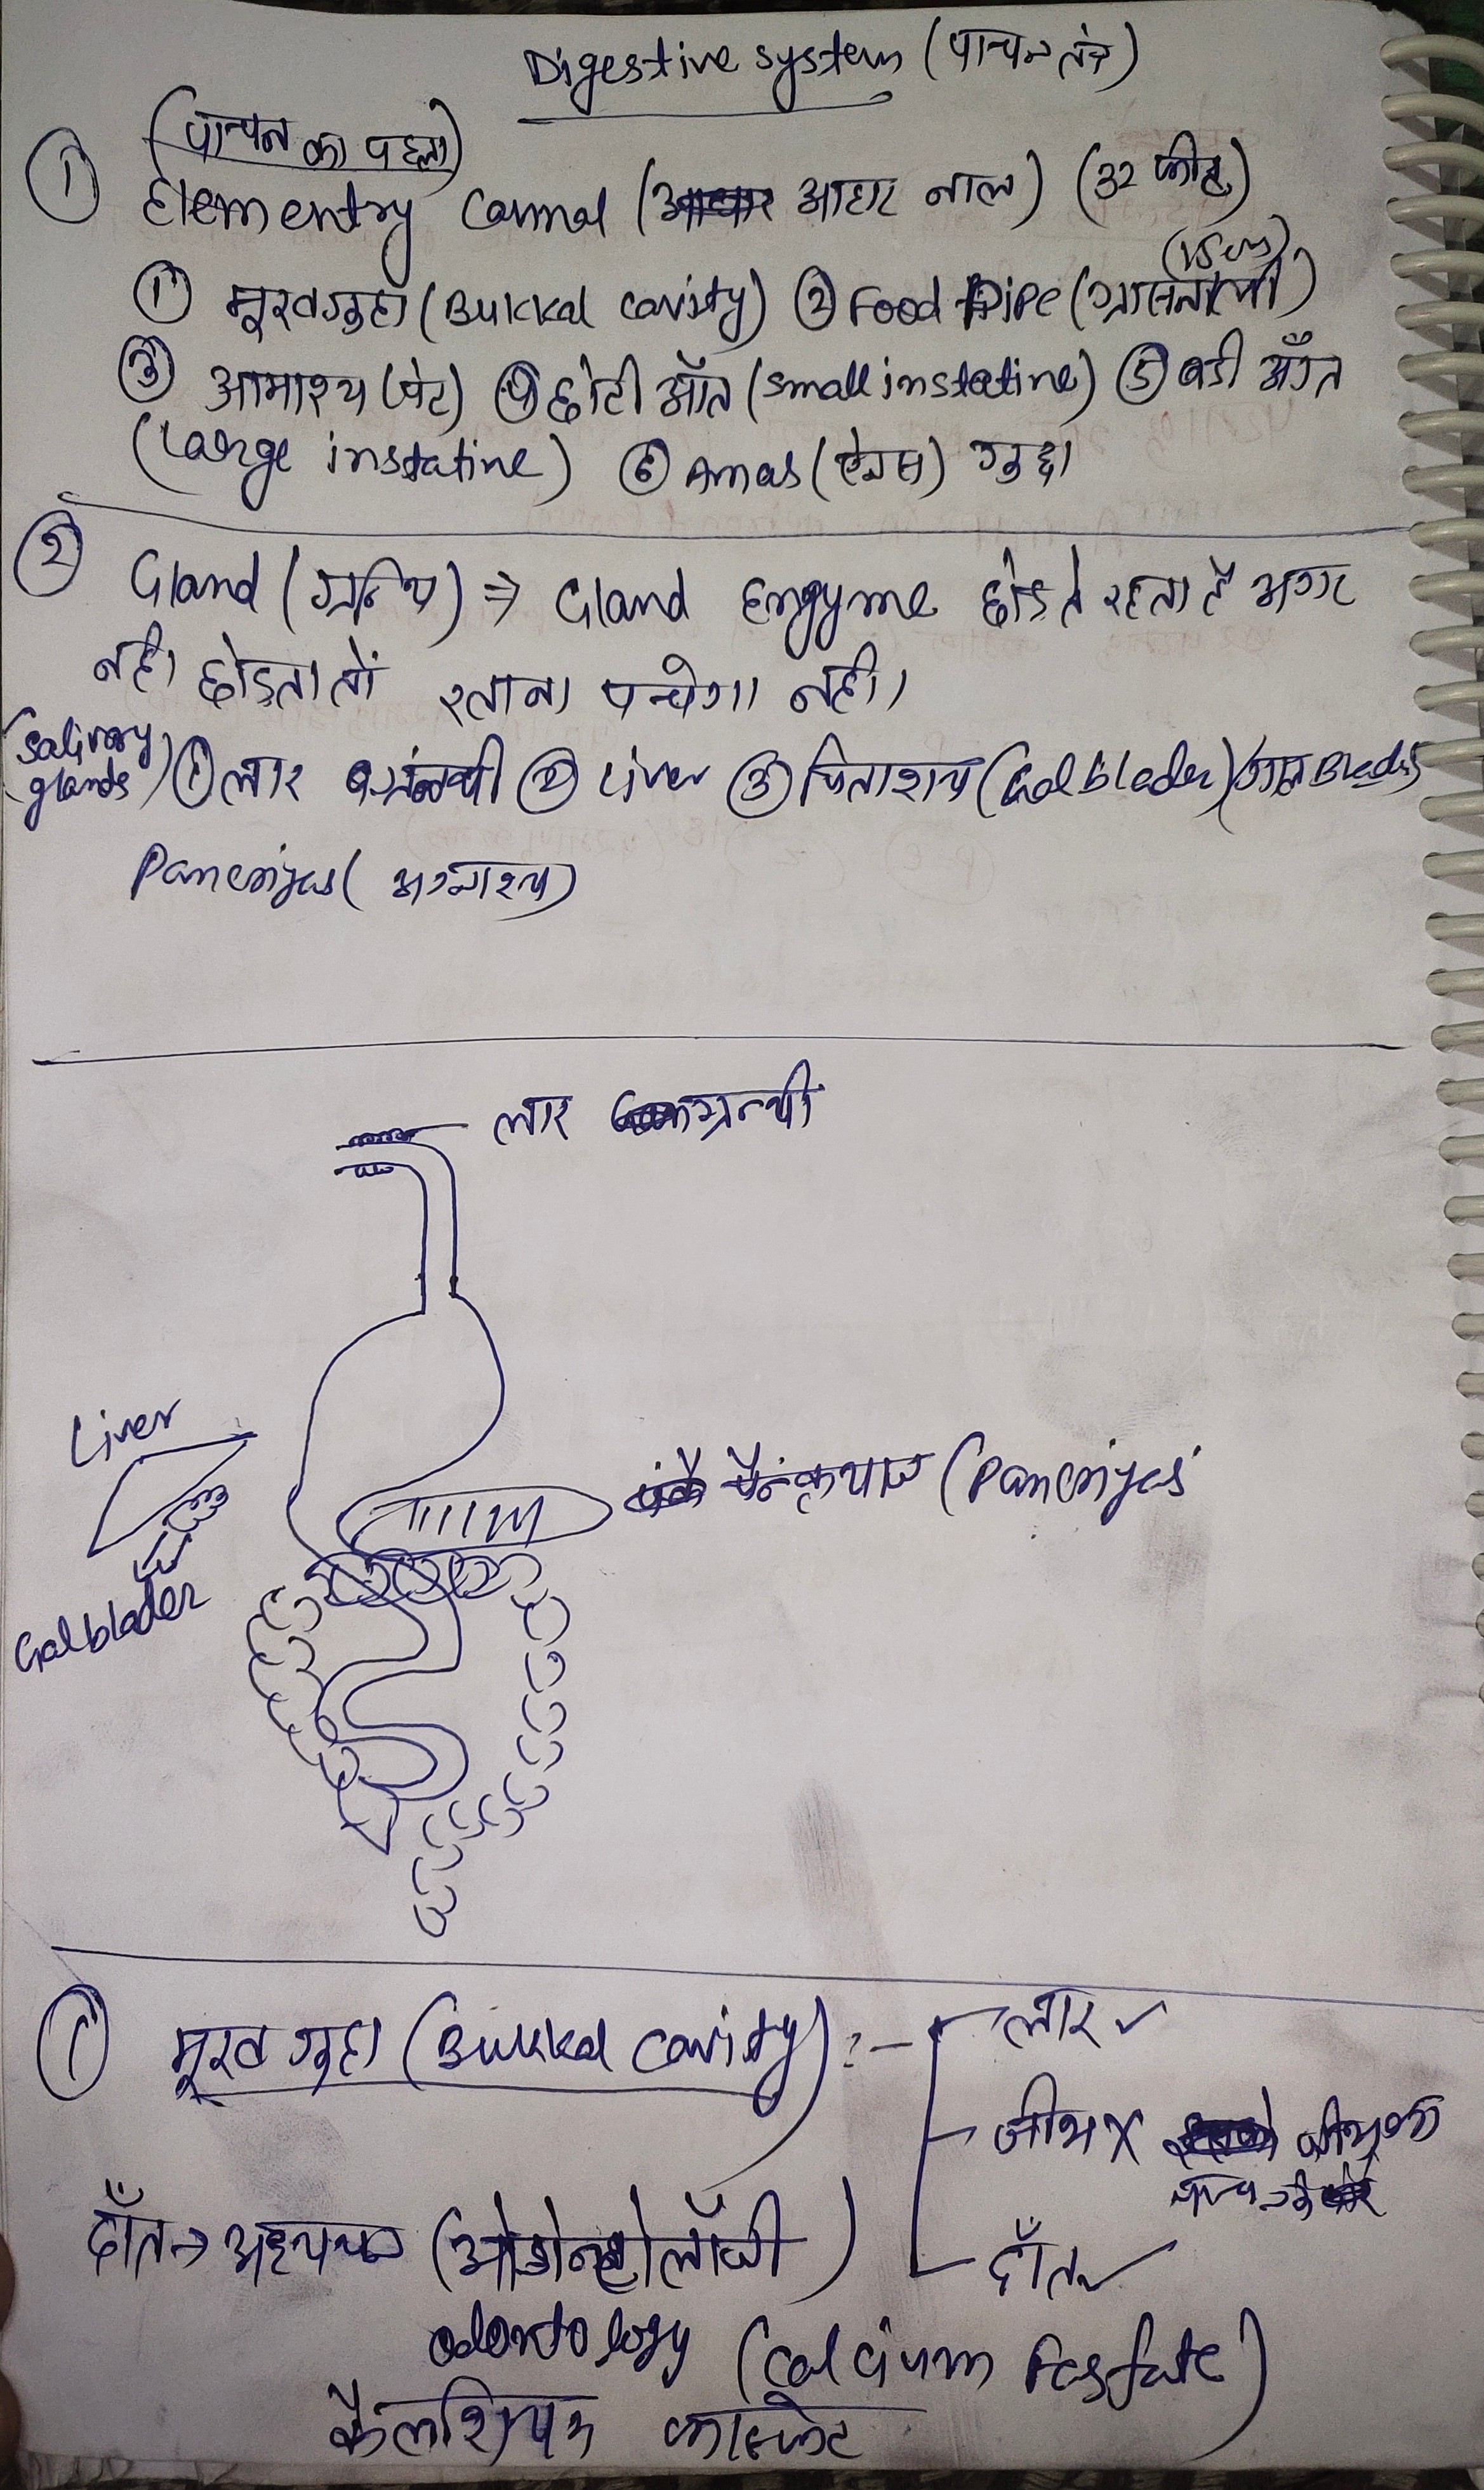 Digestive system (पाचन तंत्र)
(पाचन का पहला)
① Elementry Cannal (आहार नाल) (32 फीट)
(15 cm)
① मूखगुहा (Bukkal cavisty) ② Food Pipe (ग्रासनाली)
③ आमाश्य (पेट) ④ छोटी आँत (small instatine) ⑤ बडी आँत
(Large instatine) ⑥ Anas (ऐनस) गुद्दा
② Gland (ग्रन्थि) ⇒ Gland Engyme छोडते रहता है अगर
नही छोडता तों खाना पचेगा नही।
(salivary glands) ① लार ग्रंन्थी ② Liver ③ पिताशय (Galblader)
Pancrijas (अग्नाश्य)
लार ग्रन्थी
Liver
Galblader
पैन्क्रियाज (Pancrijas
① मूख गुहा (Bukkal cavisty) :- लार ✓
जीभ x
दाँत → अध्ययन (ओडोन्टोलॉजी)
दाँत ✓
odontology (calcium Fasfate)
कैलशियम फास्फेट